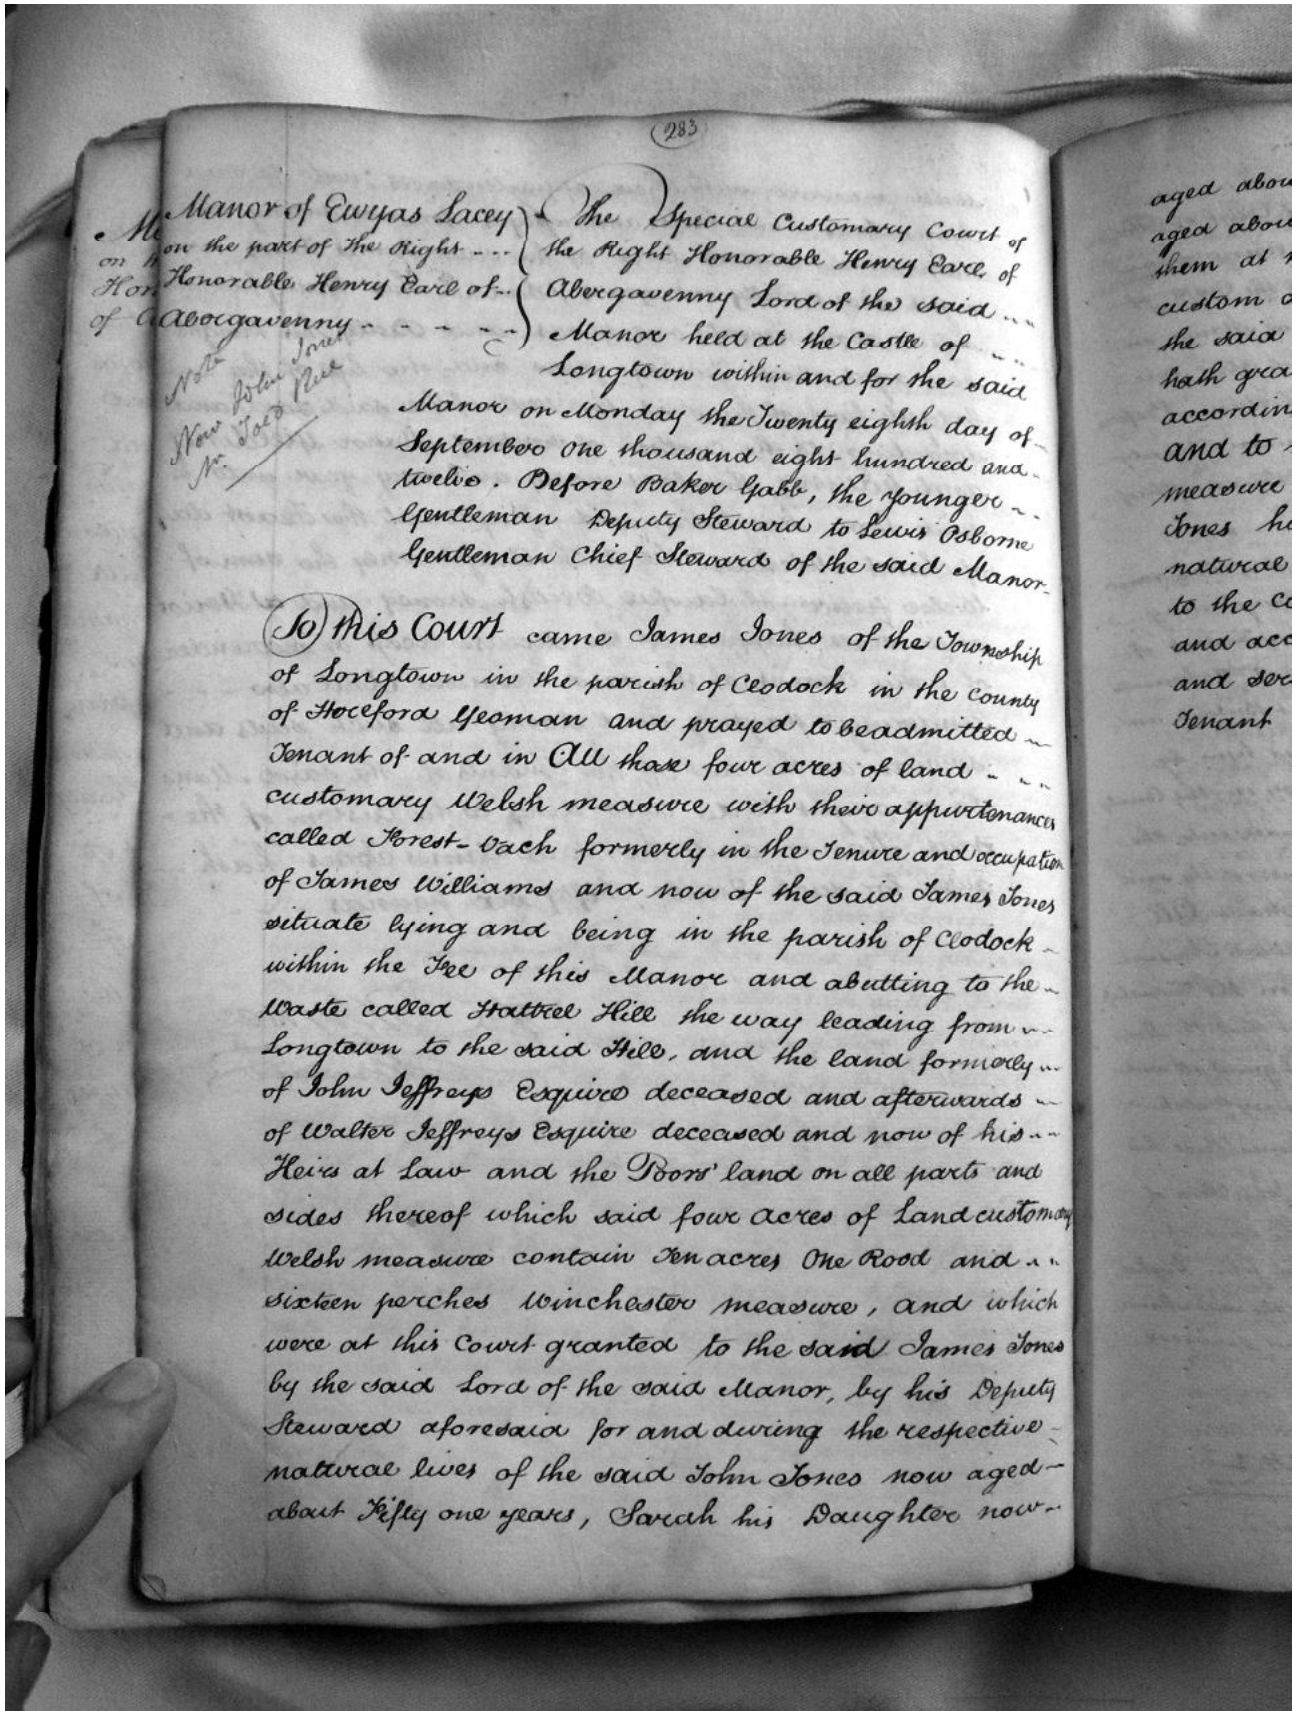 283
Manor of Ewyas Lacey
on the part of the Right
Honorable Henry Earl of
Abergavenny
The Special Customary Court of
the Right Honorable Henry Earl of
Abergavenny Lord of the said
Manor held at the Castle of
Longtown within and for the said
Manor on Monday the Twenty eighth day of
September One thousand eight hundred and
twelve. Before Baker Gabb, the younger
Gentleman Deputy Steward to Lewis Osborne
Gentleman Chief Steward of the said Manor
Note
Now John Jones
To this Court came James Jones of the Township
of Longtown in the parish of Clodock in the County
of Hereford Yeoman and prayed to be admitted
Tenant of and in All those four acres of land
customary Welsh measure with their appurtenances
called Forest-Vach formerly in the Tenure and occupation
of James Williams and now of the said James Jones
situate lying and being in the parish of Clodock
within the Fee of this Manor and abutting to the
Waste called Hattrel Hill the way leading from
Longtown to the said Hill, and the land formerly
of John Jeffreys Esquire deceased and afterwards
of Walter Jeffreys Esquire deceased and now of his
Heirs at Law and the Poors' land on all parts and
sides thereof which said four acres of Land customary
Welsh measure contain Ten acres One Rood and
sixteen perches Winchester measure, and which
were at this Court granted to the said James Jones
by the said Lord of the said Manor, by his Deputy
Steward aforesaid for and during the respective
natural lives of the said John Jones now aged
about Fifty one years, Sarah his Daughter now
aged
aged
them at
custom
the said
hath
and to
measure
Jones
natural
to the
and
and
Tenant